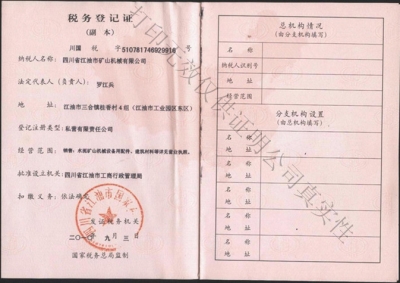 税务登记证
(副本)
川国 税 字 510781746929916 号
纳税人名称: 四川省江油市矿山机械有限公司
法定代表人(负责人): 罗江兵
地 址: 江油市三合镇桂香村4组(江油市工业园区东区)
登记注册类型: 私营有限责任公司
经营范围:
批准设立机关: 四川省江油市工商行政管理局
扣缴义务: 依法确定
发证税务机关
九月三
国家税务总局监制
总机构情况
(由分支机构填写)
名 称
纳税人识别号
地 址
经营范围
分支机构设置
(由总机构填写)
名 称
地 址
名 称
地 址
名 称
地 址
名 称
地 址
名 称
地 址
打印无效仅供证明公司真实性